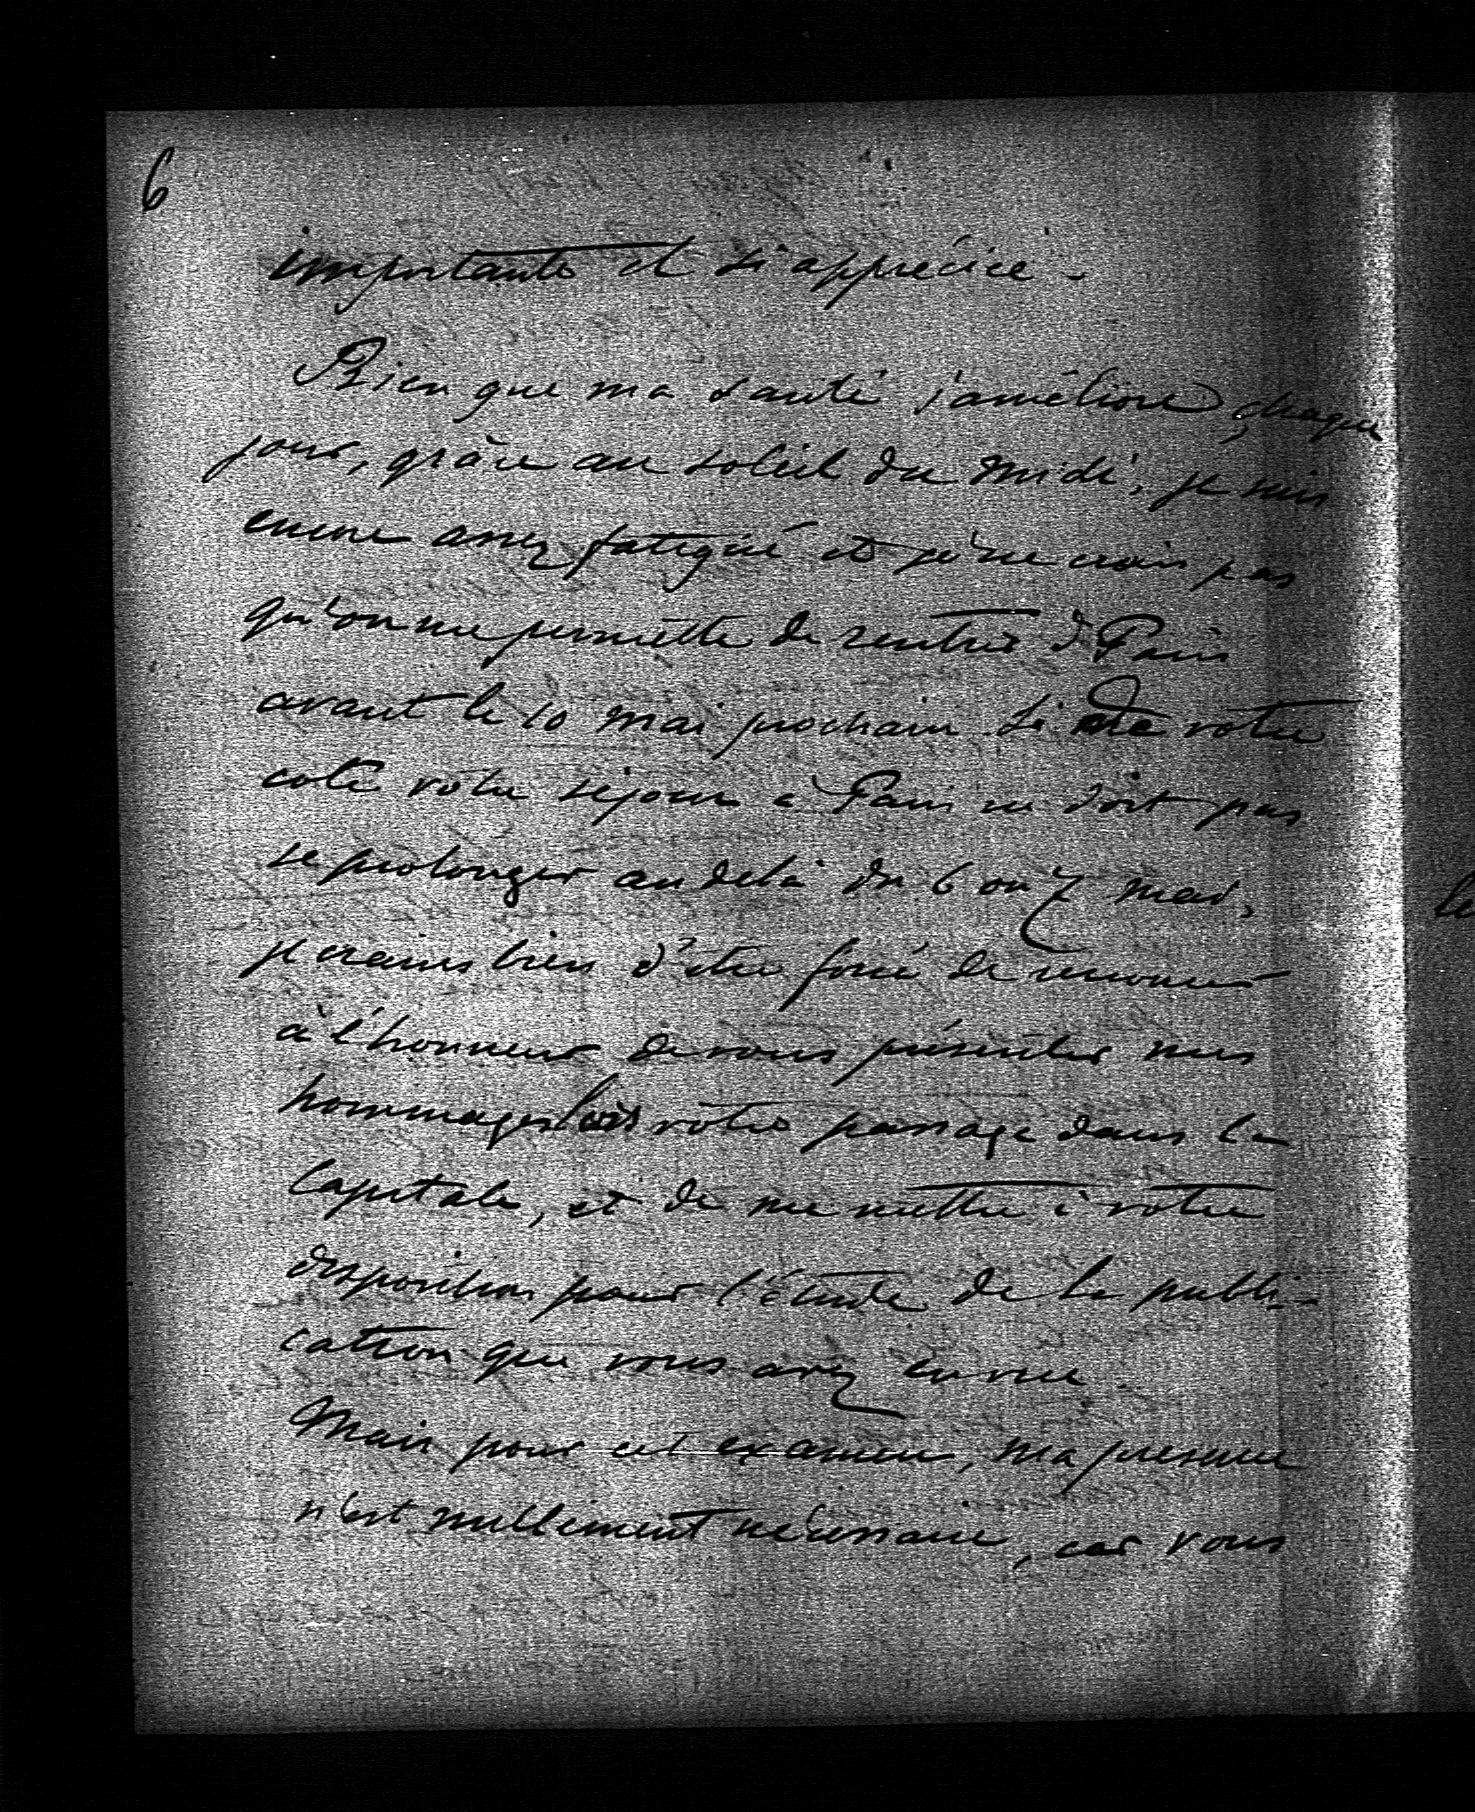 6
importante et si appréciée -
Bien que ma santé s'améliore chaque
jour, grâce au soleil du midi, je suis
encore assez fatigué et je ne crois pas
qu'on me permette de rentrer à Paris
avant le 10 mai prochain. Si de votre
coté votre séjour à Paris ne doit pas
se prolonger au delà du 6 ou 7 mai,
je crains bien d'être forcé de renoncer
à l'honneur de vous présenter mes
hommages lors votre passage dans la
Capitale, et de me mettre à votre
disposition pour l'étude de la publi-
cation que vous avez en vue.
Mais pour cet examen, ma présence
n'est nullement nécessaire, car vous